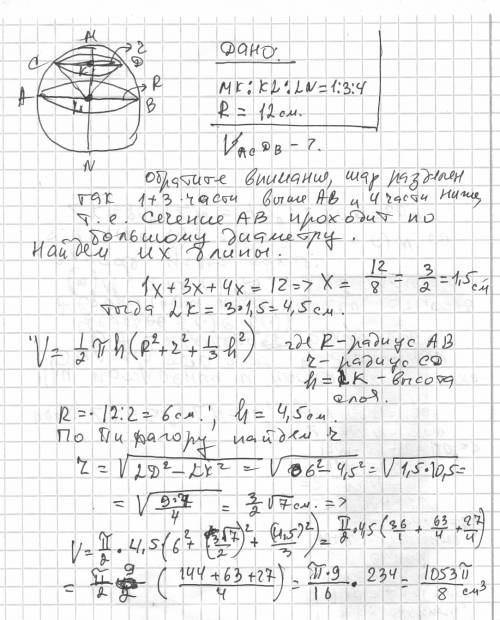 M
C
K
D
r
R
A
L
B
N
Дано:
MK:KL:LN=1:3:4
R = 12 см.
V ACDB - ?
Обратите внимание, шар разделен
так 1+3 части выше AB и 4 части ниже,
т.е. сечение AB проходит по
большому диаметру.
Найдем их длины.
1x+3x+4x=12=>x= 12/8 = 3/2 = 1,5 см
тогда LK = 3·1,5=4,5 см.
V= 1/2 πh(R²+r²+1/3 h²) где R-радиус AB
r-радиус CD
h=LK-высота
слоя.
R=12:2=6 см; h=4,5 см.
По Пифагору найдем r
r=√(LD²-LK²) = √(6²-4,5²)=√(1,5·10,5)=
=√(9·7/4) = 3/2 √7 см. =>
V= π/2 · 4,5(6²+(3√7/2)²+(4,5)²/3)= π/2 · 4,5(36/1 + 63/4 + 27/4)
= π/2 · 9/2 (144+63+27/4)= π·9/16 · 234= 1053π/8 см³